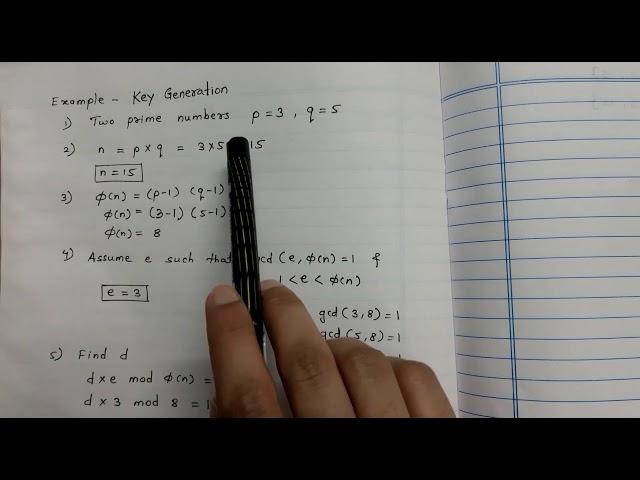 Example - Key Generation
1) Two prime numbers p = 3 , q = 5
2) n = p × q = 3 × 5 15
n = 15
3) ϕ(n) = (p-1) (q-1)
ϕ(n) = (3-1) (5-1)
ϕ(n) = 8
4) Assume e such that gcd (e, ϕ(n) = 1 &
1 < e < ϕ(n)
e = 3
gcd (3, 8) = 1
gcd (5, 8) = 1
1
5) Find d
d × e mod ϕ(n) =
d × 3 mod 8 = 1